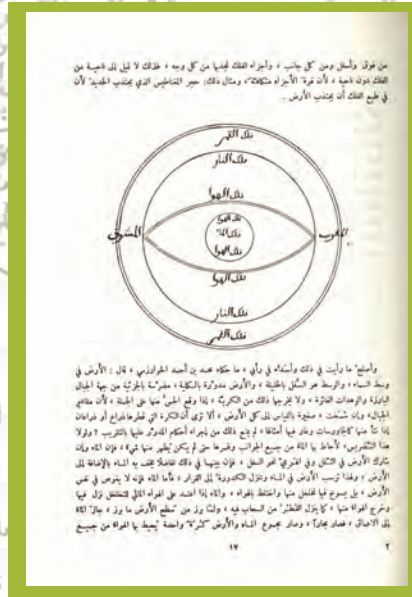 من فوق وأسفل ومن كل جانب ، وأجزاء الفلك تجذبها من كل وجه ، فلذلك لا تميل إلى ناحية من
الفلك دون ناحية ، لأن قوة الأجزاء متكافئة ، ومثال ذلك: حجر المغناطيس الذي يجتذب الحديد لأن
في طبع الفلك أن يجتذب الأرض .
فلك القمر
فلك النار
فلك الهوا
فلك الهوا
فلك الما
فلك الهوا
المشرق
المغرب
فلك الهوا
فلك النار
فلك القمر
وأصلح ما رأيت في ذلك وأسدّه في رأيي ، ما حكاه محمد بن أحمد الخوارزمي ، قال : الأرض في
وسط السماء ، والوسط هو السفل بالحقيقة ، والأرض مدوّرة بالكلية ، مضرّسة بالجزئية من جهة الجبال
البارزة والوهدات الغائرة ، ولا يخرجها ذلك من الكريّة ، إذا وقع الحسّ منها على الجملة ، لأن مقادير
الجبال، وإن شمخت ، صغيرة بالقياس إلى كل الأرض ، ألا ترى أن الكرة التي قطرها ذراع أو ذراعان
إذا نتأ منها كالجاورسات وغار فيها أمثالها ، لم يمنع ذلك من إجراء أحكام المدوّر عليها بالتقريب ؟ ولولا
هذا التضريس، لأحاط بها الماء من جميع الجوانب وغمرها حتى لم يكن يظهر منها شيء ، فإن الماء وإن
شارك الأرض في الثقل وفي الهويّ نحو السفل ، فإن بينهما في ذلك تفاضلا يخفّ به الماء بالإضافة إلى
الأرض ، ولهذا ترسب الأرض في الماء وتنزل الكدورة إلى القرار ، فأما الماء فإنه لا يغوص في نفس
الأرض ، بل يسوخ فيما تخلخل منها واختلط بالهواء ، والماء إذا اعتمد على الهواء المائي للتخلخل نزل فيها
وخرج الهواء منها ، كما ينزل القطر من السحاب فيه ، ولما برز من سطح الأرض ما برز ، جاز الماء
إلى الأعماق ، فصار بحارا ، وصار مجموع الماء والأرض كرة واحدة يحيط بها الهواء من جميع
٢
١٧